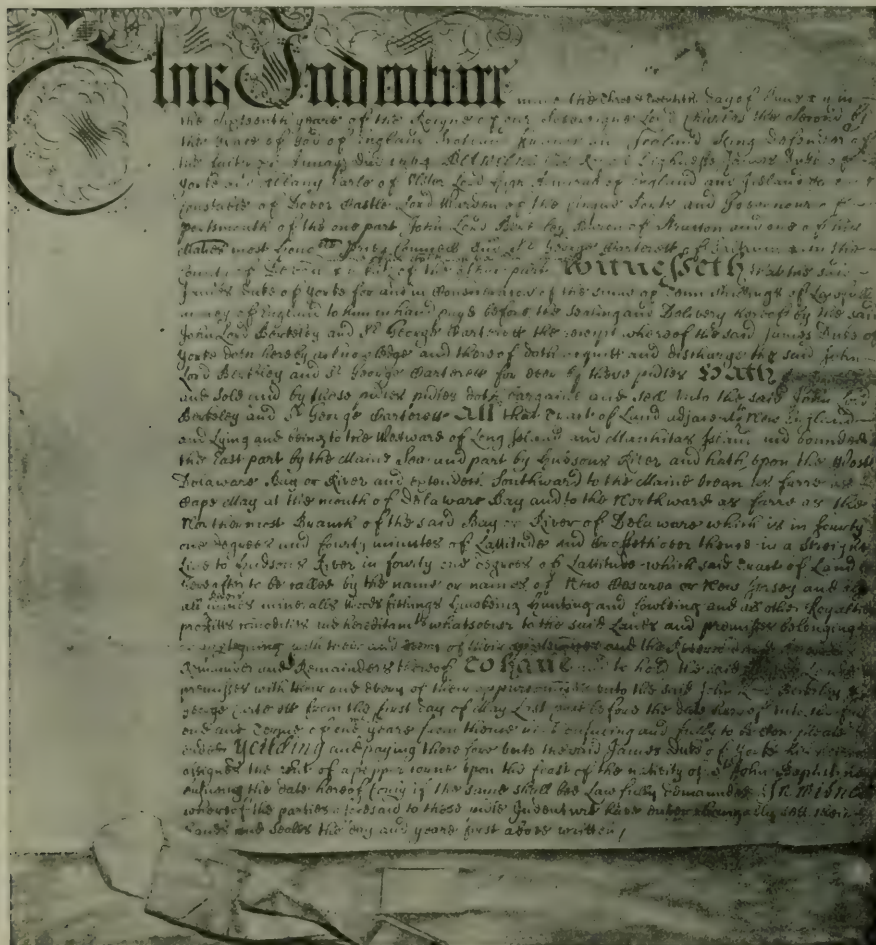 This Indenture made the three & twentieth day of June in
the sixteenth yeare of the Raigne of our Soveraigne Lord Charles the second by
the Grace of God of England Scotland King Defender of
the faith &c Annoq Dni 1664 Betweene his Royal Highnesse James Duke of
Yorke and Albany Earle of Ulster Lord high Admirall of England and Ireland
Constable of Dover Castle Lord Warden of the Cinque Ports and Governour of
Portsmouth of the one part John Lord Berkeley Baron of Stratton and one of his
Maties most honoble Privy Councell and Sr George Carterett of in the
County of Devon of the other part Witnesseth that the said
James Duke of Yorke for and in Consideracon of the summe of Tenn shillings of Lawfull
money of England to him in hand payd before the sealing and Delivery hereof by the said
John Lord Berkeley and Sr George Carterett the receipt whereof the said James Duke of
Yorke doth hereby acknowledge and thereof doth acquitt and discharge the said John
Lord Berkeley and Sr George Carterett for ever by these presents Hath
and Sold and by these presents doth bargaine and sell unto the said John Lord
Berkeley and Sr George Carterett All that Tract of Land adjacent to New England
and Lying and being to the Westward of Long Island and Manhitas Island and bounded
the East part by the Maine Sea and part by Hudsons River and hath upon the West
Delaware Bay or River and extendeth Southward to the Maine Ocean as farre as
Cape May at the mouth of Delaware Bay and to the Northward as farre as the
Northermost Branch of the said Bay or River of Delaware which is in fourty
one degrees and fourty minutes of Lattitude and Crosseth over thence in a Streight
Line to Hudsons River in fourty one degrees of Lattitude which said Tract of Land
hereafter to be called by the name or names of New Cesarea or New Jersey and
all Rivers mines mineralls Woods fishings hawking Hunting and fowleing and all other Royalties
proffitts comodities and hereditamts whatsoever to the said Lands and premisses belonging
with their and every of their appurtennces and the Revercon
Remainder and Remainders thereof To have and to hold the said
premisses with their and every of their appurtennces unto the said John Lord Berkeley &
George Carterett from the first day of May Last past before the date hereof unto
end and Terme of one yeare from thence next ensueing and fully to be compleate
ended Yeilding and paying therefore unto the said James Duke of Yorke his
assignes the rent of a pepper corne upon the feast of the nativity of St John Baptist
ensueing the date hereof (only if the same shall be Lawfully demaunded) In Witnes
whereof the parties aforesaid to these presents Indentures have enterchangeably sett their
hands and seales the day and yeare first above written /